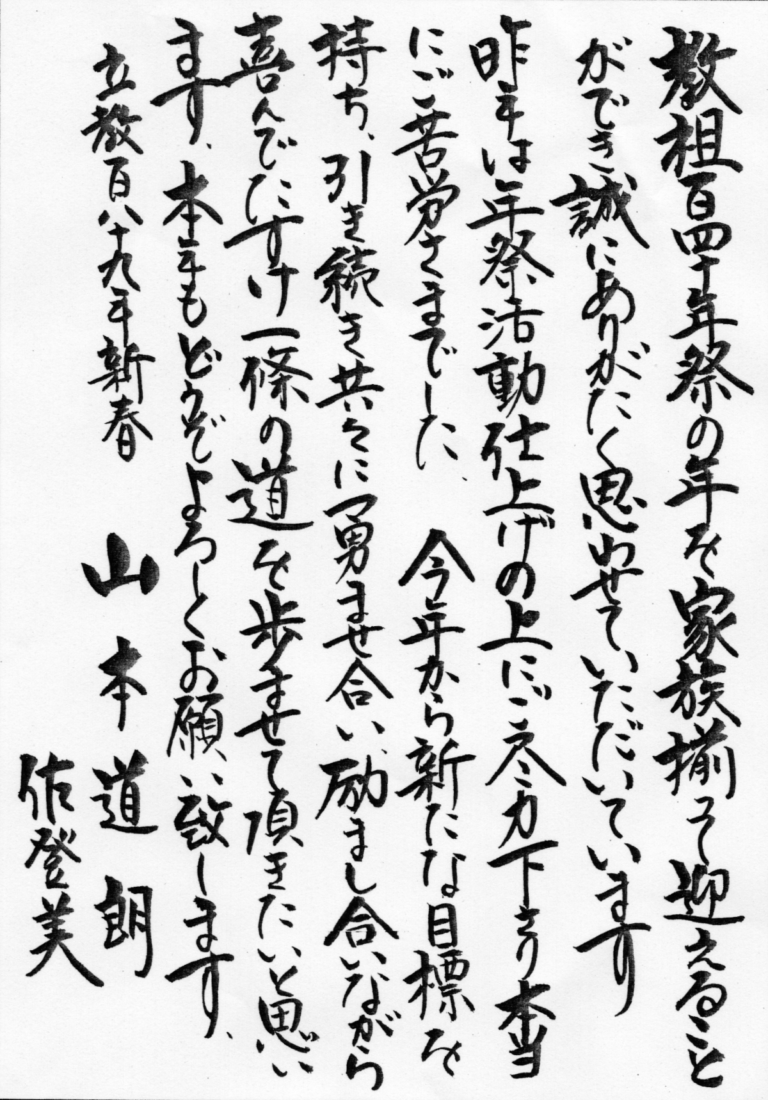 教祖百四十年祭の年を家族揃って迎えること
ができ誠にありがたく思わせていただいています
昨年は年祭活動仕上げの上にご尽力下さり本当
にご苦労さまでした、今年から新たな目標を
持ち、引き続き共々に勇ませ合い、励まし合いながら
喜んでたすけ一條の道を歩ませて頂きたいと思い
ます、本年もどうぞよろしくお願い致します、
立教百八十九年新春 山本道朗
佐登美